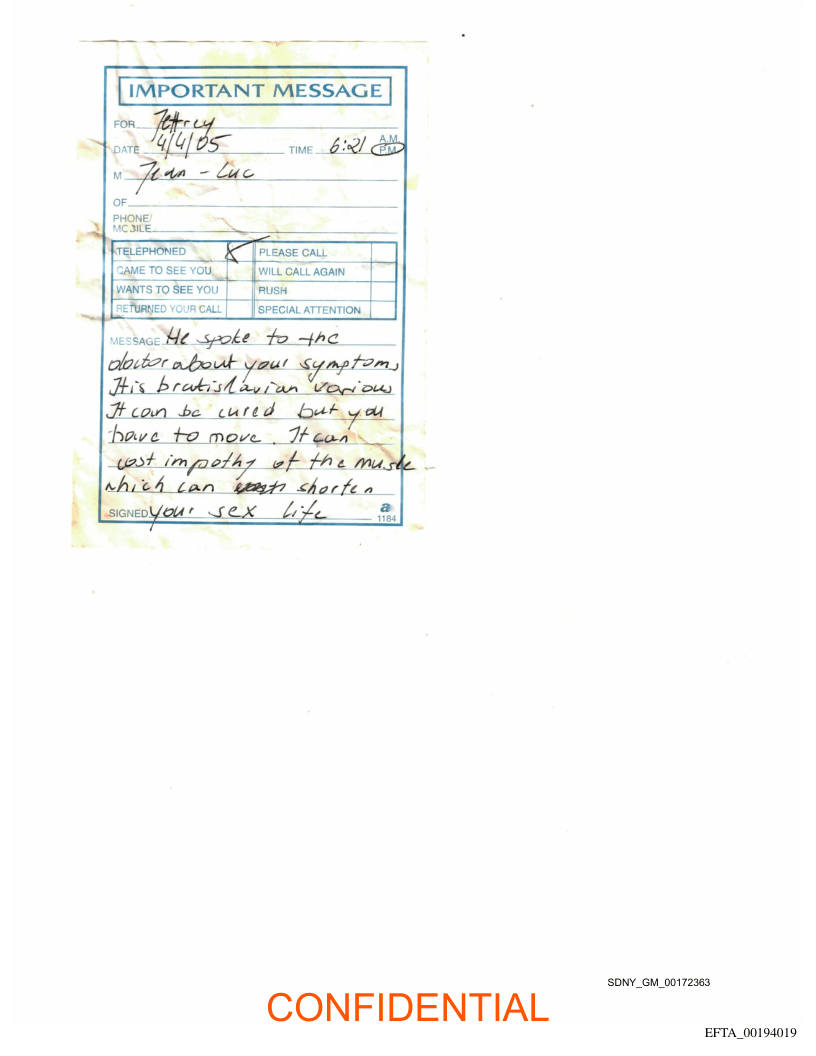 IMPORTANT MESSAGE
FOR Jeffrey
DATE 4/4/05 TIME 6:21 A.M. P.M.
M Jean-Luc
OF
PHONE/
MOBILE
TELEPHONED X PLEASE CALL
CAME TO SEE YOU WILL CALL AGAIN
WANTS TO SEE YOU RUSH
RETURNED YOUR CALL SPECIAL ATTENTION
MESSAGE He spoke to the
doctor about your symptoms
It is bratislavian various
It can be cured but you
have to move. It can
cost impothy of the muscle
which can shorten
SIGNED your sex life
a
1184
SDNY_GM_00172363
CONFIDENTIAL
EFTA_00194019